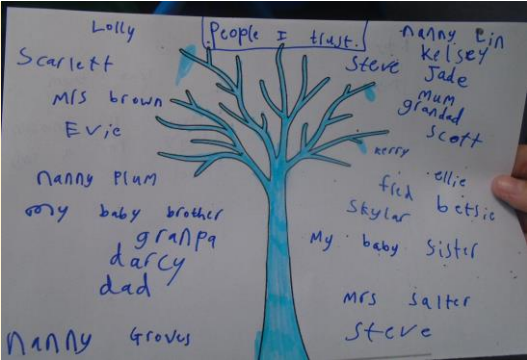 People I trust.
Lolly
Scarlett
Mrs brown
Evie
nanny Plum
my baby brother
granpa
darcy
dad
nanny Groves
nanny Lin
Kelsey
Steve
Jade
mum
grandad
Scott
kerry
ellie
fred
betsie
Skylar
My baby sister
mrs salter
Steve